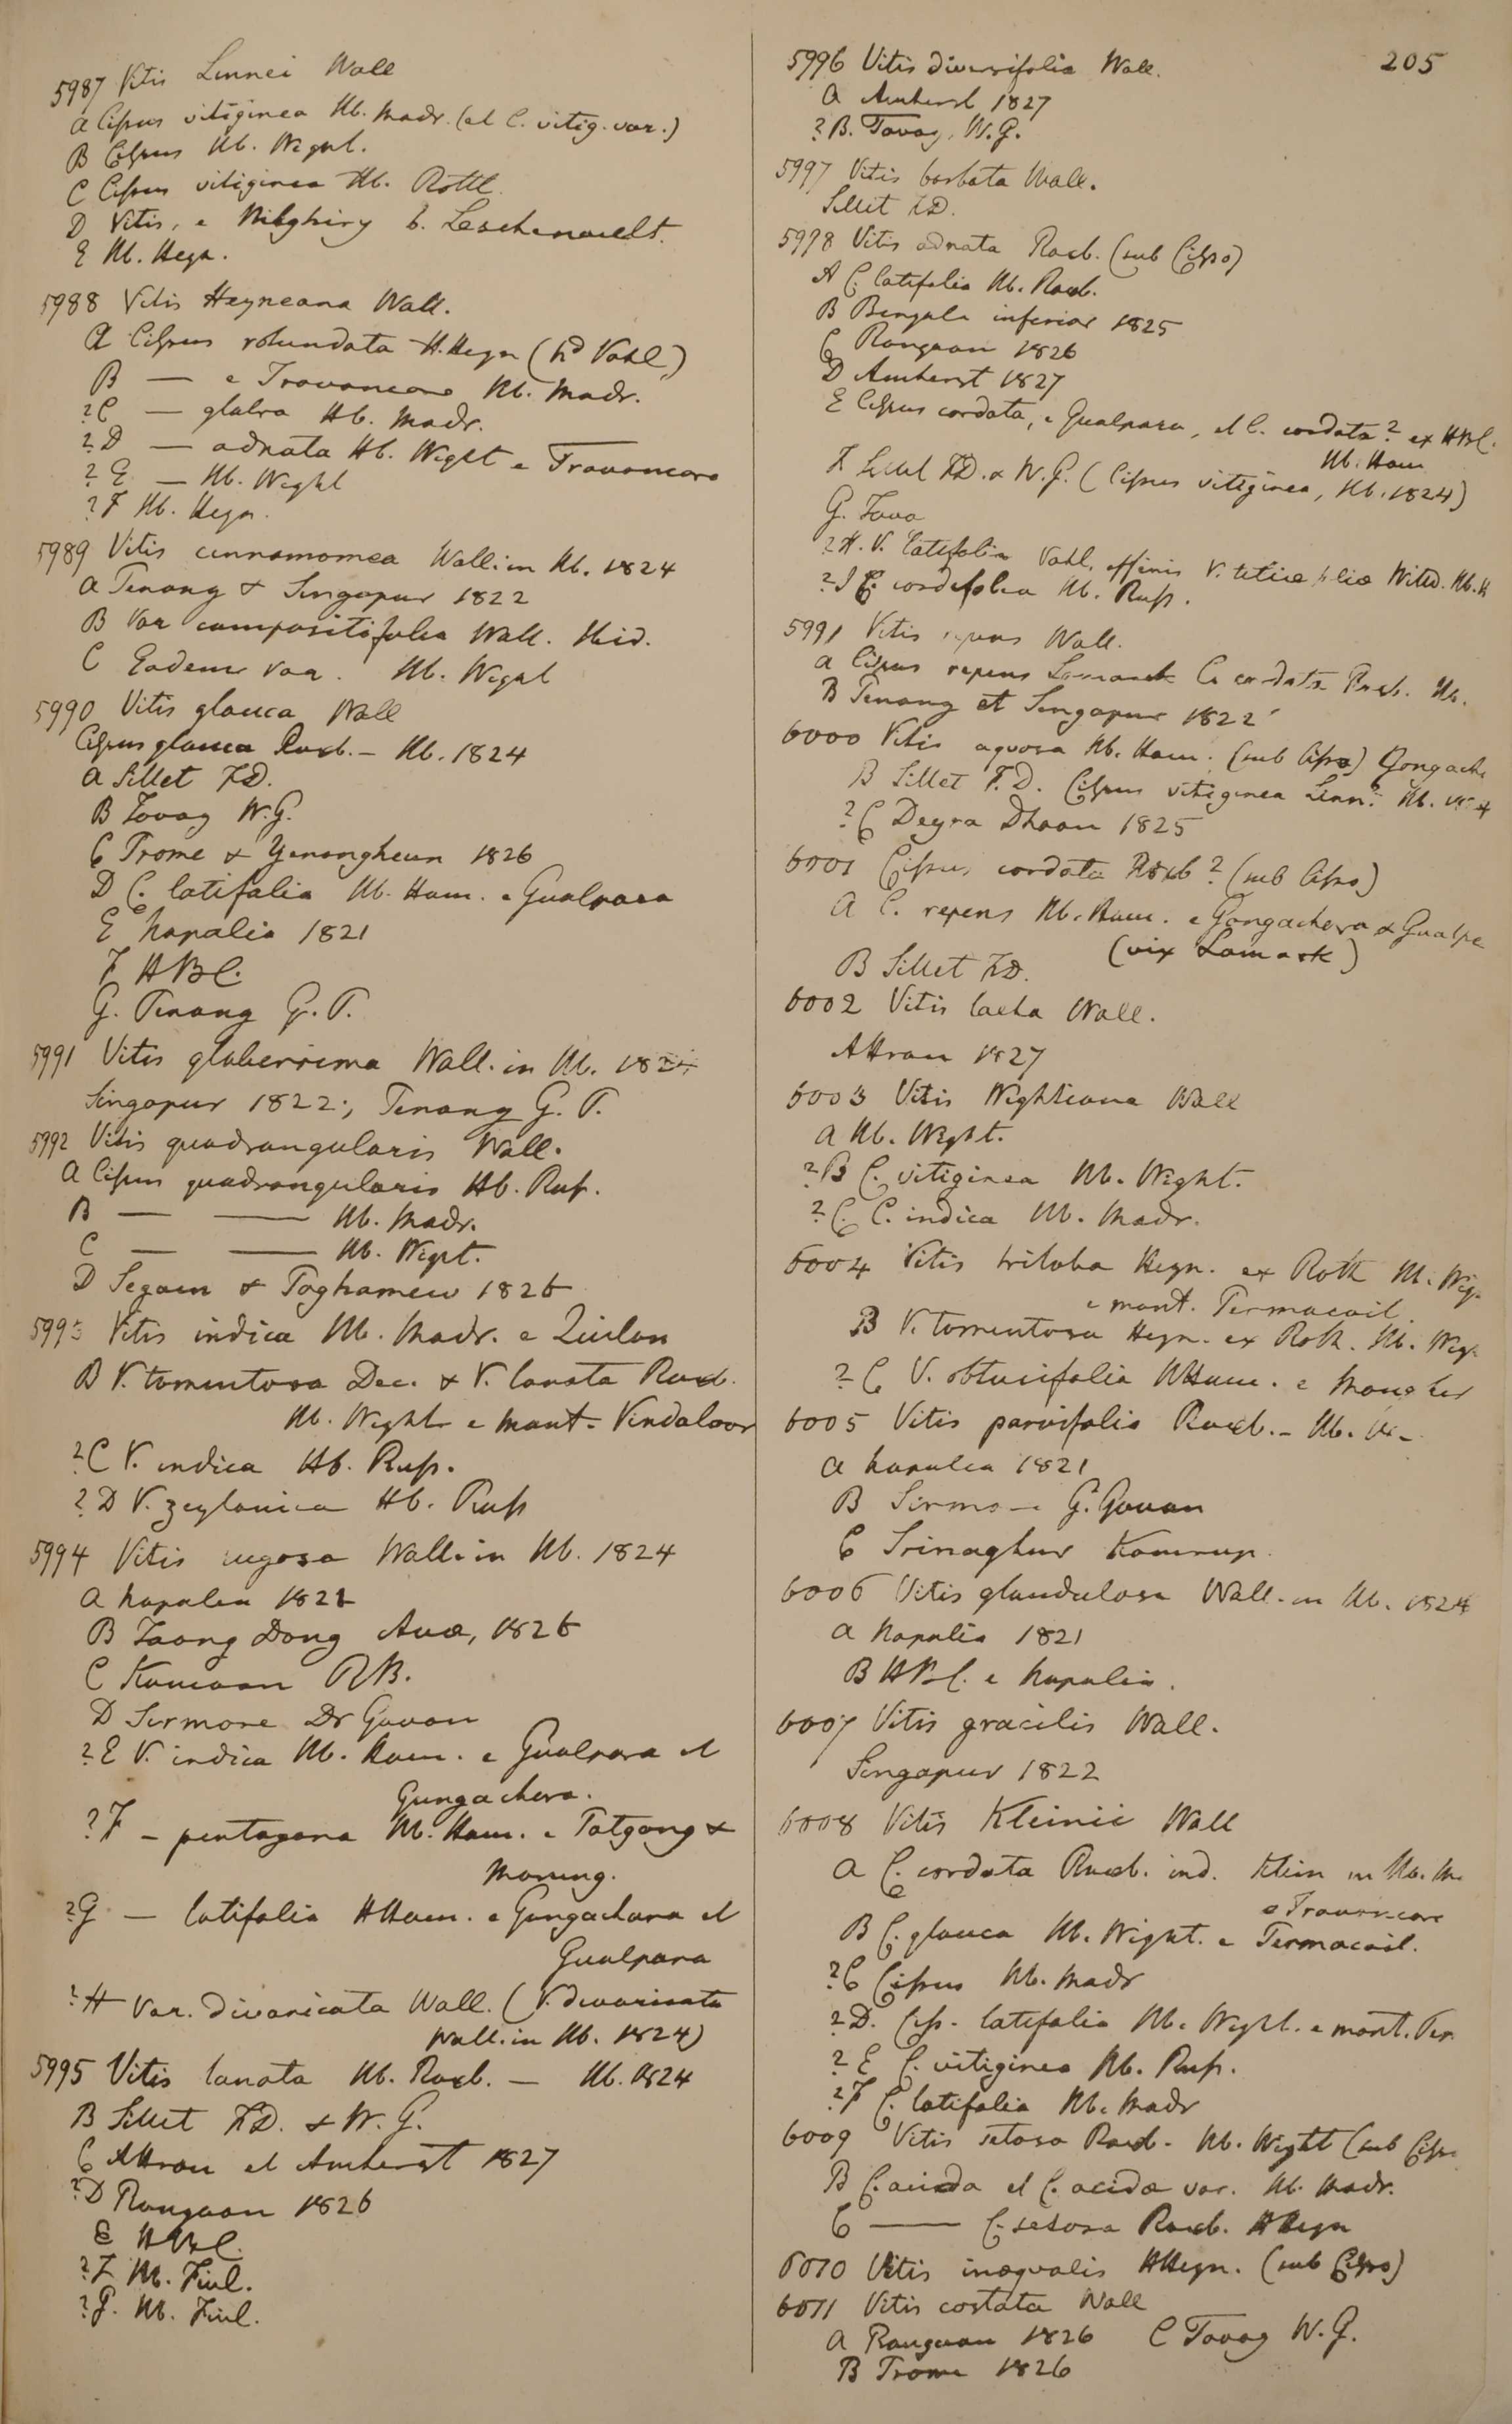 5987 Vitis Linnei Wall
A Cissus vitiginea Hb. Madr. (et C. vitig. var.)
B Cissus Hb. Wight.
C Cissus vitiginea Hb. Rottl.
D Vitis, e Nilghiry b. Leschenault.
E Hb. Heyn.
5988 Vitis Heyneana Wall.
A Cissus rotundata H. Heyn (hd Vahl)
B — e Travancore Hb. Madr.
?C — glabra Hb. Madr.
?D — adnata Hb. Wight e Travancore
?E — Hb. Wight
?F Hb. Heyn.
5989 Vitis cinnamomea Wall. in Hb. 1824
A Penang & Singapur 1822
B Var compositifolia Wall. Ibid.
C Eadem var. Hb. Wight
5990 Vitis glauca Wall
Cissus glauca Roxb. — Hb. 1824
A Sillet F.D.
B Tavoy W.G.
C Prome & Yenangheun 1826
D C. latifolia Hb. Ham. e Gualpara
E Napalia 1821
F HBC.
G. Penang G.P.
5991 Vitis glaberrima Wall. in Hb. 1824
Singapur 1822; Penang G.P.
5992 Vitis quadrangularis Wall.
A Cissus quadrangularis Hb. Russ.
B — — Hb. Madr.
C — — Hb. Wight.
D Segaen & Paghamew 1826
5993 Vitis indica Hb. Madr. e Quilon
B V. tomentosa Dec. & V. lanata Roxb.
Hb. Wight e mont. Vendaloor
?C V. indica Hb. Russ.
?D V. zeylanica Hb. Russ
5994 Vitis rugosa Wall. in Hb. 1824
A Napalia 1821
B Taong Dong Avae, 1826
C Kamaon R.B.
D Sirmore Dr Govan
?E V. indica Hb. Ham. e Gualpara et
Gungachora.
?F — pentagona Hb. Ham. e Tatgong &
Morung.
?G — latifolia HHam. e Gungachara et
Gualpara
?H Var. divaricata Wall. (V. divaricata
Wall. in Hb. 1824)
5995 Vitis lanata Hb. Roxb. — Hb. 1824
B Sillet F.D. & W.G.
C Attran et Amherst 1827
?D Rangoon 1826
E HBC.
?F Hb. Finl.
?G. Hb. Finl.
205
5996 Vitis diversifolia Wall.
A Amherst 1827
?B. Tavoy, W.G.
5997 Vitis barbata Wall.
Sillet F.D.
5998 Vitis adnata Roxb. (sub Cisso)
A C. latifolia Hb. Roxb.
B Bengala inferior 1825
C Rangoon 1826
D Amherst 1827
E Cissus cordata, e Gualpara, et C. cordata? ex HBC.
Hb. Ham
F Sillet F.D. & W.G. (Cissus vitiginea, Hb. 1824)
G. Java
?H. V. latifolia Vahl, affinis V. Willd. Hb. H
?I C. cordifolia Hb. Russ.
5991 Vitis repens Wall.
A Cissus repens Lamarck C. cordata Roxb. Hb.
B Penang et Singapur 1822
6000 Vitis aquosa Hb. Ham. (sub Cisso) Gongach
B Sillet F.D. Cissus vitiginea Linn? Hb.
?C Deyra Dhoon 1825
6001 Cissus cordata Roxb? (sub Cisso)
A C. repens Hb. Ham. e Gongachora & Gualpa
(vix Lamark)
B Sillet F.D.
6002 Vitis laeta Wall.
Attran 1827
6003 Vitis Wightiana Wall
A Hb. Wight.
?B C. vitiginea Hb. Wight.
?C. C. indica Hb. Madr.
6004 Vitis triloba Heyn. ex Roth Hb. Wig
e mont. Permacoil
B V. tomentosa Heyn. ex Roth. Hb. Wig
?C V. obtusifolia HHam. e Mongher
6005 Vitis parvifolia Roxb. — Hb.
A Napalia 1821
B Sirmore G. Govan
C Srinaghur Kamrup.
6006 Vitis glandulosa Wall. in Hb. 1824
A Napalia 1821
B HBC. e Napalia.
6007 Vitis gracilis Wall.
Singapur 1822
6008 Vitis Kleinii Wall
A C. cordata Roxb. ind. Klein in Hb. M
e Travancore
B C. glauca Hb. Wight. e Permacoil.
?C Cissus Hb. Madr
?D. Ciss. latifolia Hb. Wight. e mont. Per
?E C. vitiginea Hb. Russ.
?F C. latifolia Hb. Madr
6009 Vitis setosa Roxb. Hb. Wight (sub Cisso
B C. acida et C. acida var. Hb. Madr.
C — C. setosa Roxb. HHeyn
6010 Vitis inaequalis HHeyn. (sub Cisso)
6011 Vitis costata Wall
A Rangoon 1826 C Tavoy W.G.
B Prome 1826